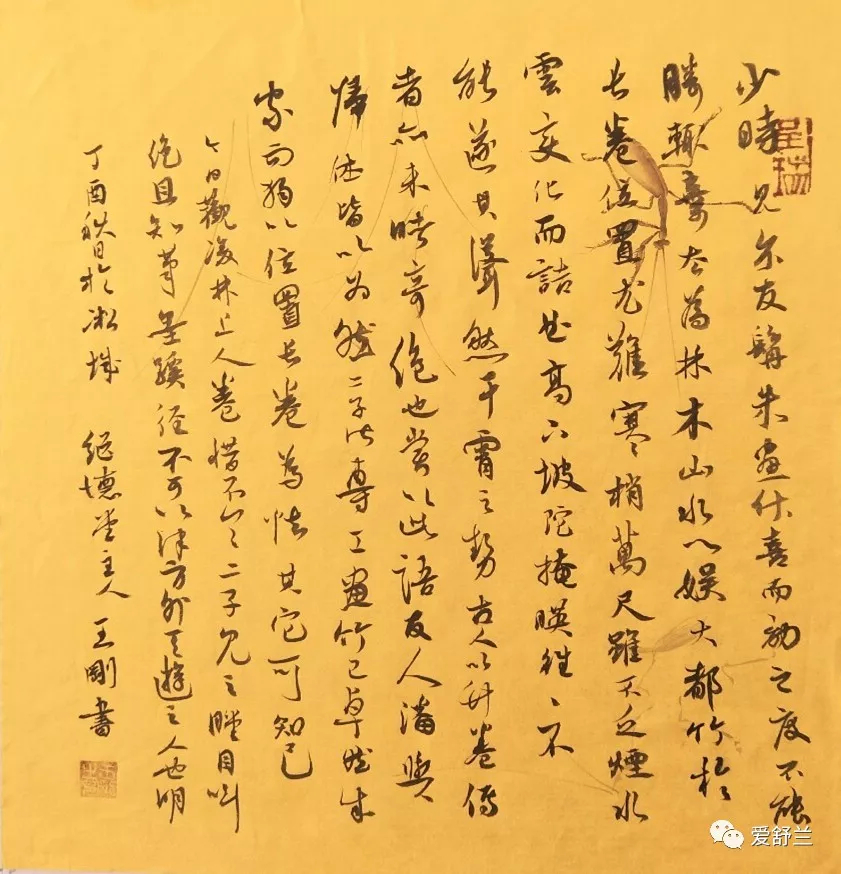 少時見尔友鬍朱畫什喜而効之度不能
勝輒棄去為林木山水以娱大都竹於
長卷位置尤難寒梢萬尺雖不乏煙水
雲変化而詰曲高下坡陀掩暎往往不
能遂其聳然干霄之勢古人以竹卷傳
者亦未睹奇絶也嘗以此語友人潘與
歸休皆以为然二子皆專工畫竹已卓然成
家而猶以位置長卷為怯其它可知已
今日觀凌林上人卷惜不令二子見之瞠目叫
絶且知筆墨蹊徑不可以律方外天遊之人也明
丁酉秋日於淞城 德堂主人 王剛書
爱舒兰